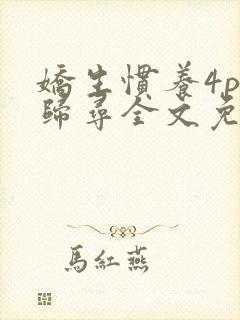 嬌生慣養4p
歸尋全文免
馬紅燕